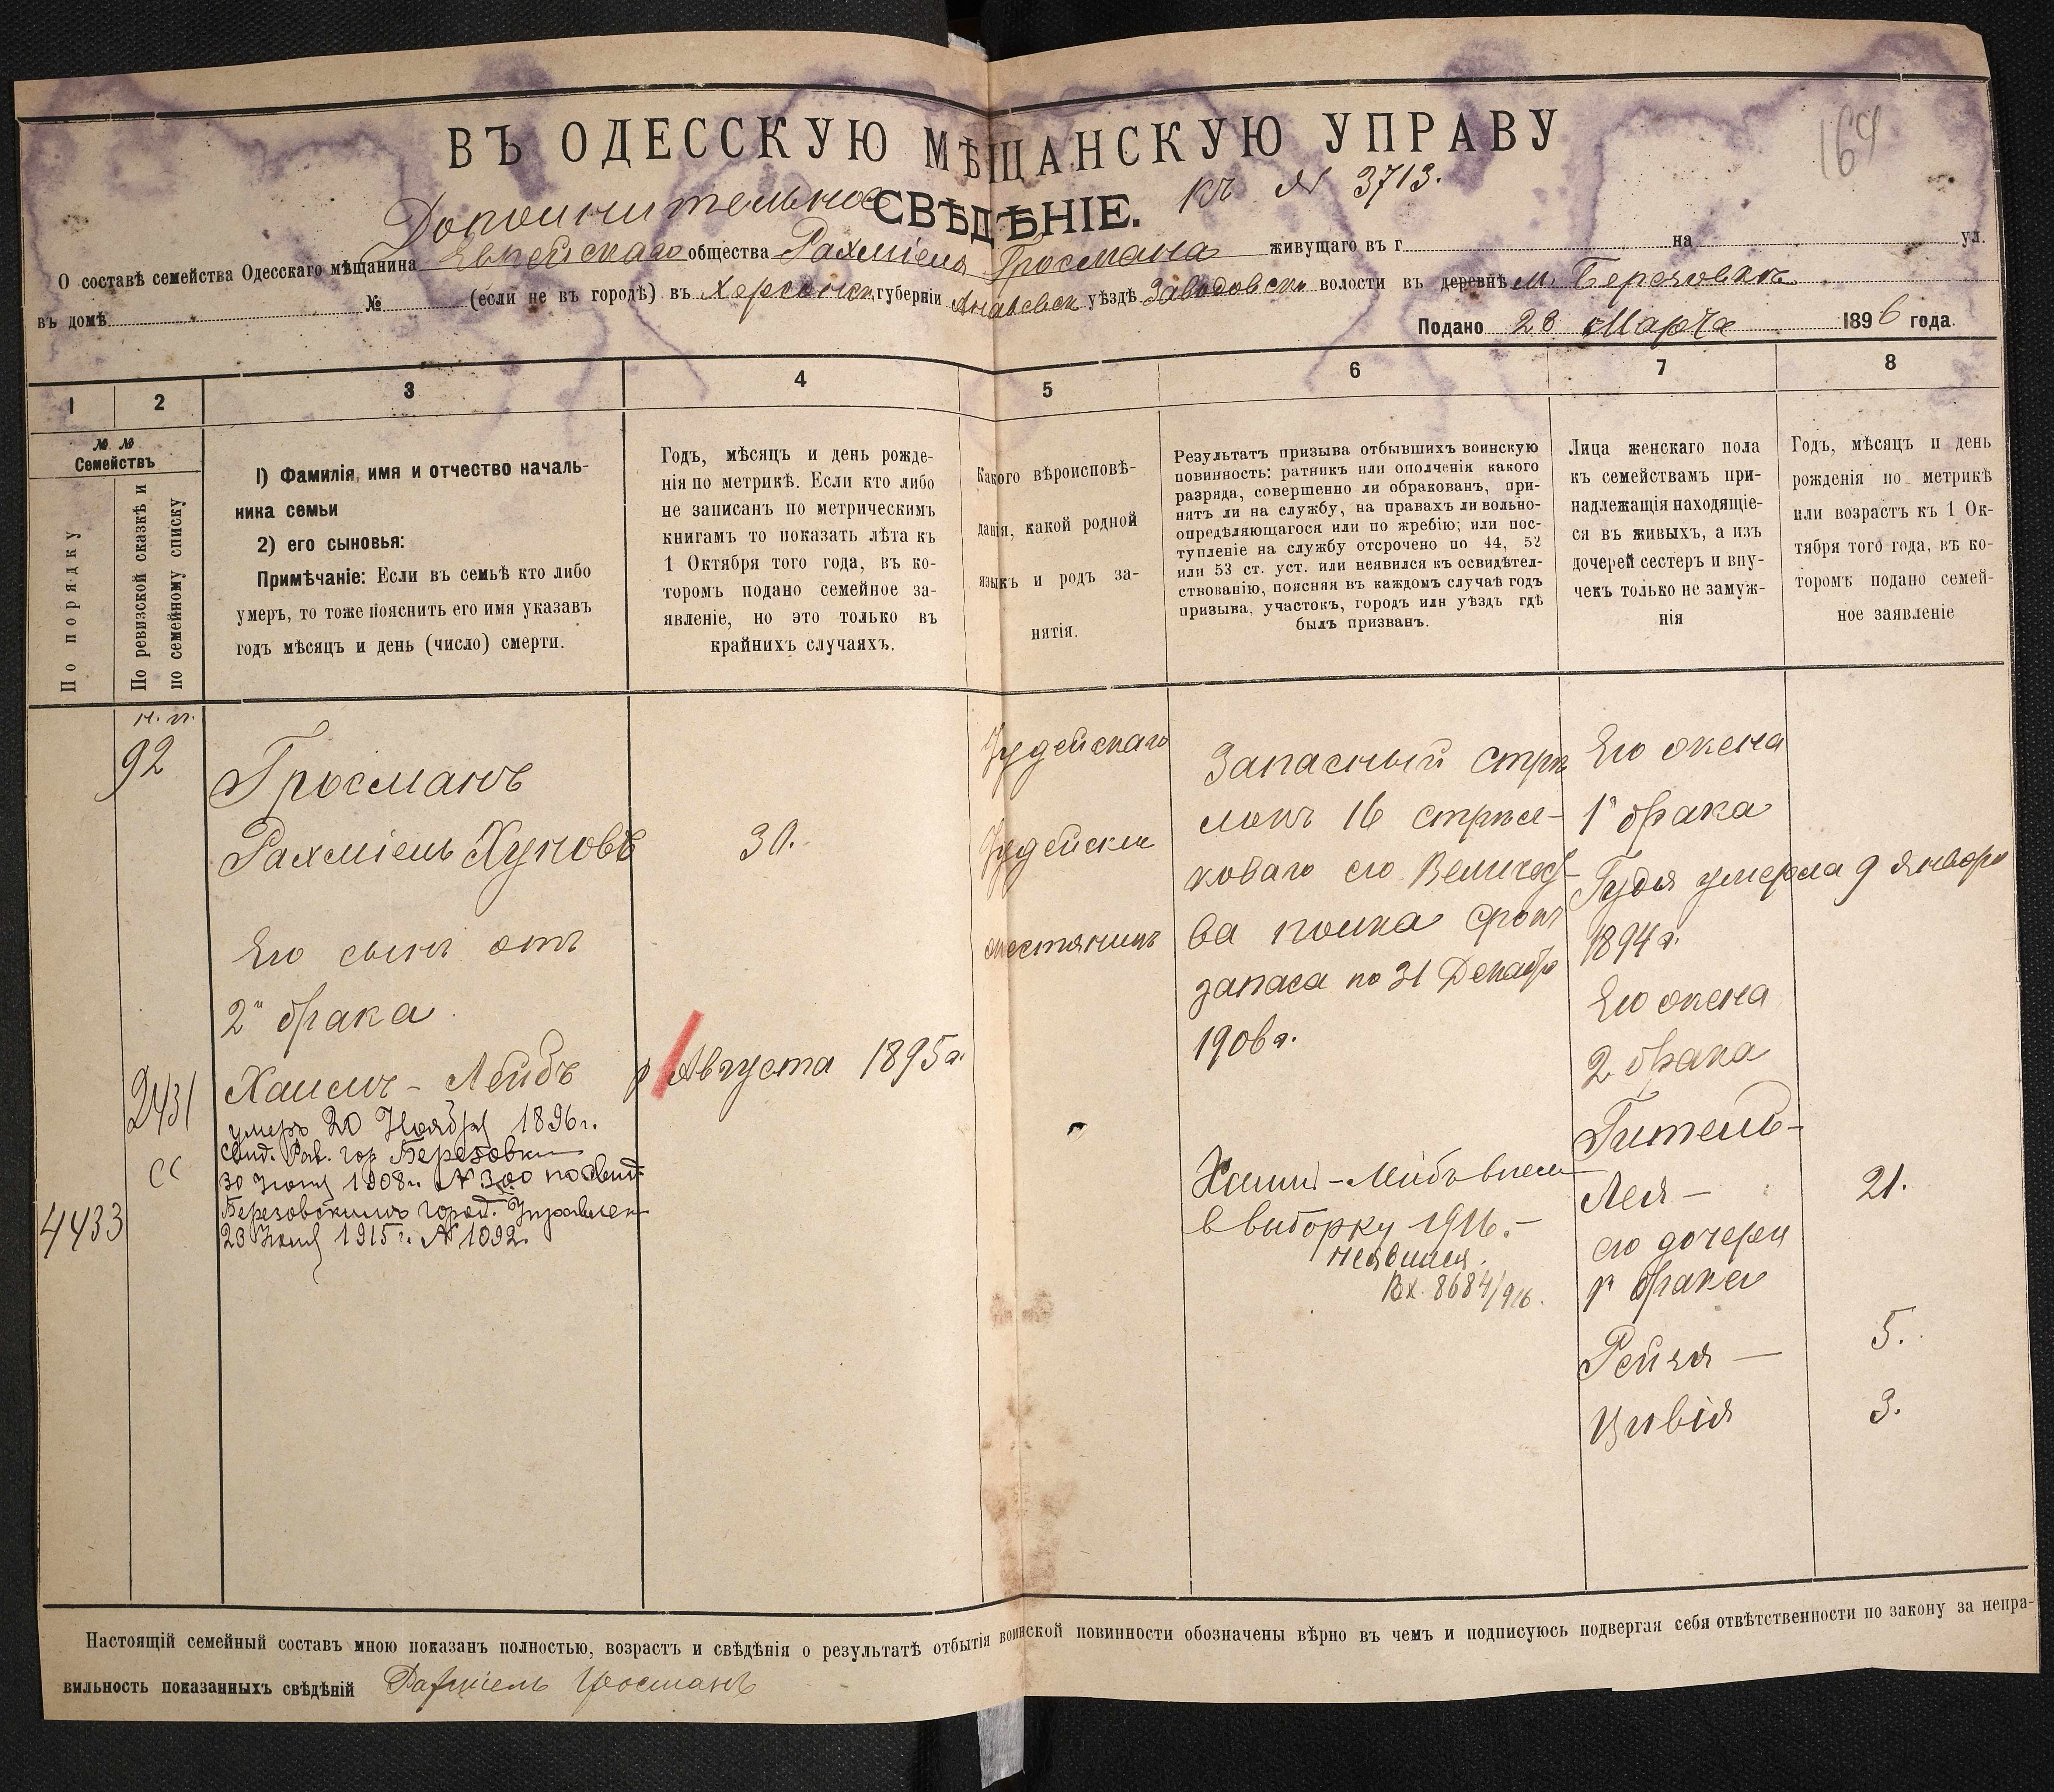 164
ВЪ ОДЕССКУЮ МѢЩАНСКУЮ УПРАВУ
Дополнительное СВѢДѢНІЕ. къ № 3713.
О составѣ семейства Одесскаго мѣщанина Еврейскаго общества Рахміеля Гросмана живущаго въ г на ул.
въ домѣ № (если не въ городѣ) въ Херсонск губерніи Ананьевск уѣздѣ Заводовск волости въ деревнѣ м. Березовкѣ
Подано 28 Марта 1896 года.
1 2 3 4 5 6 7 8
№ № Семействъ
По порядку
По ревизской сказкѣ и
по семейному списку
1) Фамилія, имя и отчество началь-
ника семьи
2) его сыновья:
Примѣчаніе: Если въ семьѣ кто либо
умеръ, то тоже пояснить его имя указавъ
годъ мѣсяцъ и день (число) смерти.
Годъ, мѣсяцъ и день рожде-
нія по метрикѣ. Если кто либо
не записанъ по метрическимъ
книгамъ то показать лѣта къ
1 Октября того года, въ ко-
торомъ подано семейное за-
явленіе, но это только въ
крайнихъ случаяхъ.
Какого вѣроисповѣ-
данія, какой родной
языкъ и родъ за-
нятія.
Результатъ призыва отбывшихъ воинскую
повинность: ратникъ или ополченія какого
разряда, совершенно ли обракованъ, при-
нятъ ли на службу, на правахъ ли вольно-
опредѣляющагося или по жребію; или пос-
тупленіе на службу отсрочено по 44, 52
или 53 ст. уст. или неявился къ освидѣтел-
ствованію, поясняя въ каждомъ случаѣ годъ
призыва, участокъ, городъ или уѣздъ гдѣ
былъ призванъ.
Лица женскаго пола
къ семействамъ при-
надлежащія находящіе-
ся въ живыхъ, а изъ
дочерей сестеръ и вну-
чекъ только не замуж-
нія
Годъ, мѣсяцъ и день
рожденія по метрикѣ
или возрастъ къ 1 Ок-
тября того года, въ ко-
торомъ подано семей-
ное заявленіе
92
2431
сс
4433
Гросманъ
Рахміель Хуновъ
Его сынъ отъ
2го брака
Хаимъ-Лейбъ
умеръ 20 Ноября 1896г.
свид. Рав. гор Березовки
30 Іюня 1908г. № 300 по свид.
Березовскимъ город. Управлен
23 Іюня 1915г. № 1092.
30.
Августа 1895г.
Іудейскаго
Іудейскій
мѣстянинъ
Запасный стрѣ
локъ 16 стрѣл-
коваго его Величест-
ва полка срокъ
запаса по 31 Декабр
1906г.
Хаим-Лейбъ внесен
в выборку 1916.-
неявился.
Вх. 8684/916.
Его жена
1го брака
Гудя умерла 9 Января
1894г.
Его жена
2 брака
Гитель-
Лея - 21.
его дочери
1го брака
Рейзя - 5.
Цивія 3.
Настоящій семейный составъ мною показанъ полностью, возрастъ и свѣдѣнія о результатѣ отбытія воинской повинности обозначены вѣрно въ чемъ и подписуюсь подвергая себя отвѣтственности по закону за непра-
вильность показанныхъ свѣдѣній Рахміель Гросманъ